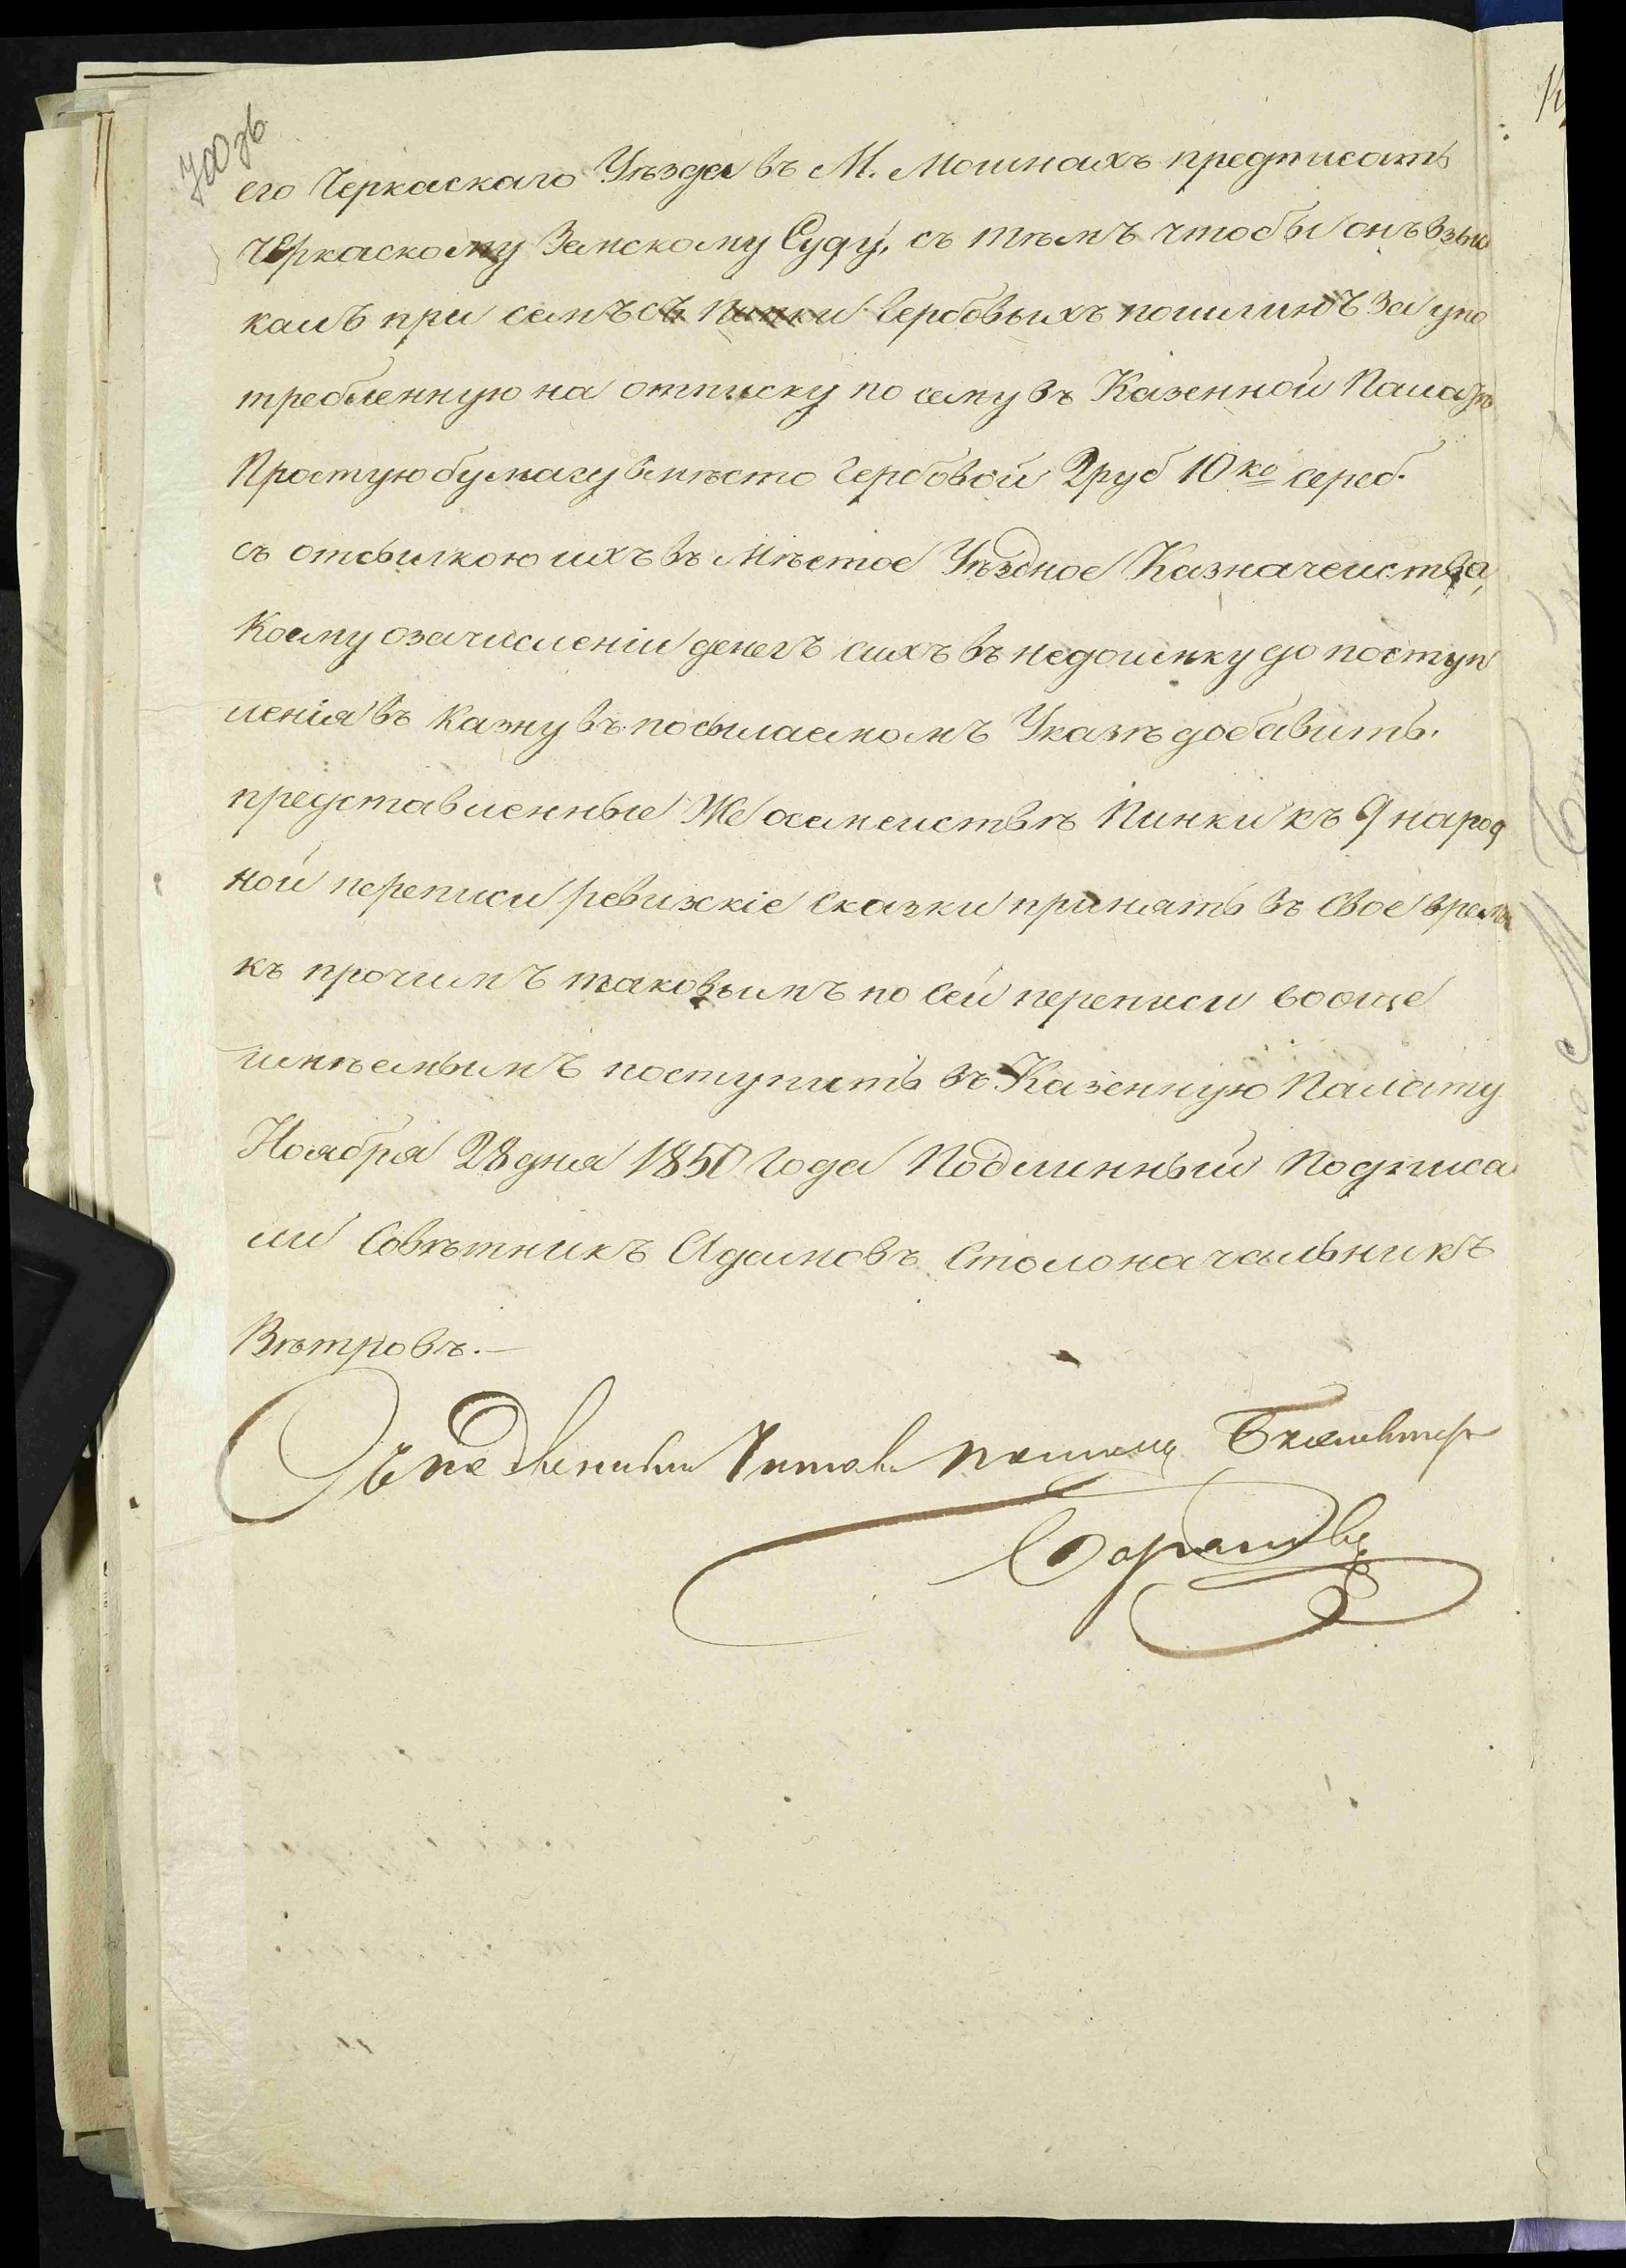 700зв
его Черкаскаго Уѣзда въ М. Мошнахъ предписать
Черкаскому Земскому Суду, съ тѣмъ чтобы онъ взыс
калъ при семъ съ Пинки Гербовыхъ пошлинъ за упо
требленную на отписку по сему въ Казенной Палатѣ
Простую бумагу вмѣсто Гербовой 2 руб 10 ко сереб.
съ отсылкою ихъ въ мѣстое Уѣздное Казначейства,
Коему озачисленіи денегъ сихъ въ недоимку до поступ
ленія въ казну въ посылаемомъ Указѣ добавить.
представленные Же осемействѣ Пинки къ 9 народ
ной переписи ревизкіе сказки принять въ свое время
къ прочимъ таковымъ по сей переписи вооще
имѣемымъ поступить въ Казенную Палату
Ноября 28 дня 1850 Года Подлинный Подписа
ли Совѣтникъ Адамовъ Столоначальникъ
Вѣтровъ.—
Съ подленнымъ Читавъ помощ Бхгалтер